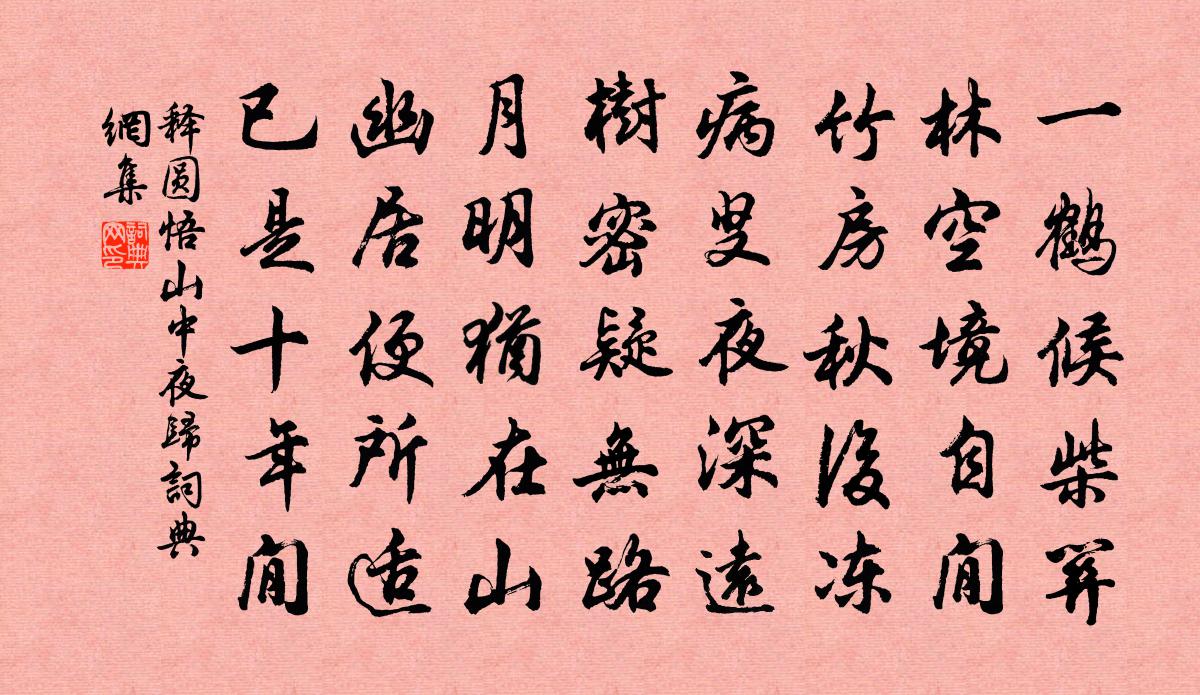 一鶴候柴關
林空境自閒
竹房秋後冻
病叟夜深還
樹密疑無路
月明猶在山
幽居便所适
已是十年間
释圆悟山中夜歸詞典
網集
詞典
网印